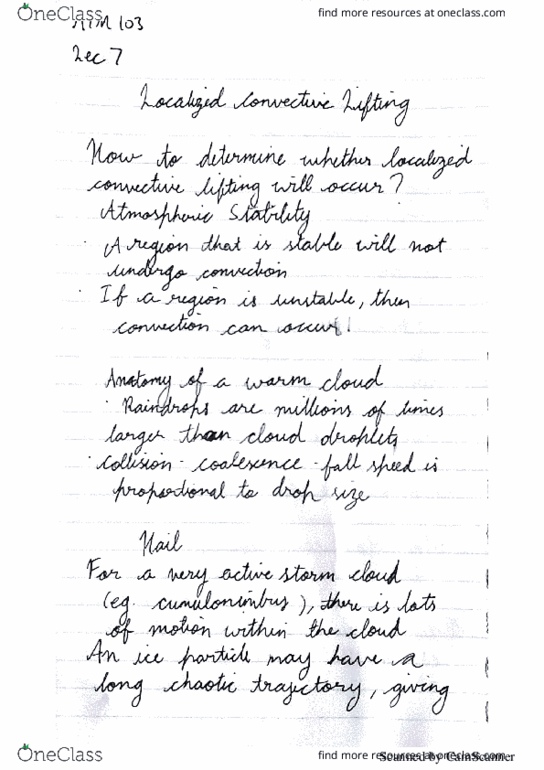 OneClass
find more resources at oneclass.com
ATM 103
Lec 7
Localized Convective Lifting
How to determine whether localized
convective lifting will occur?
Atmospheric Stability
· A region that is stable will not
undergo convection
· If a region is unstable, then
convection can occur!
Anatomy of a warm cloud
· Raindrops are millions of times
larger than cloud droplets
· Collision - coalescence - fall speed is
proportional to drop size
Hail
For a very active storm cloud
(eg. cumulonimbus), there is lots
of motion within the cloud
An ice particle may have a
long chaotic trajectory, giving
OneClass
find more resources at oneclass.com
Scanned by CamScanner